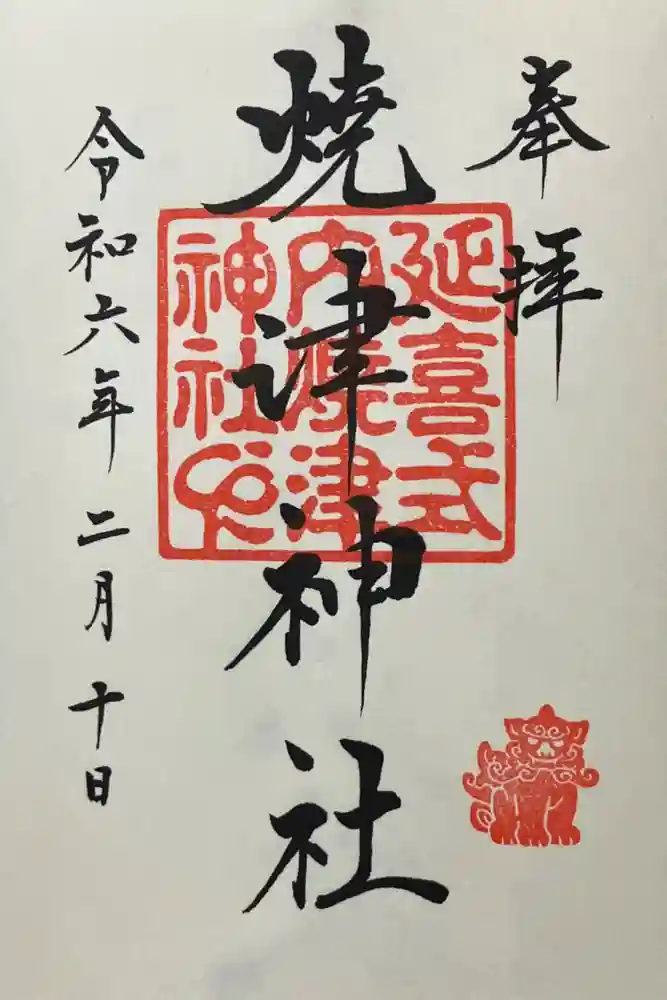 奉拝
焼津神社
延喜式
内焼津
神社印
令和六年二月十日